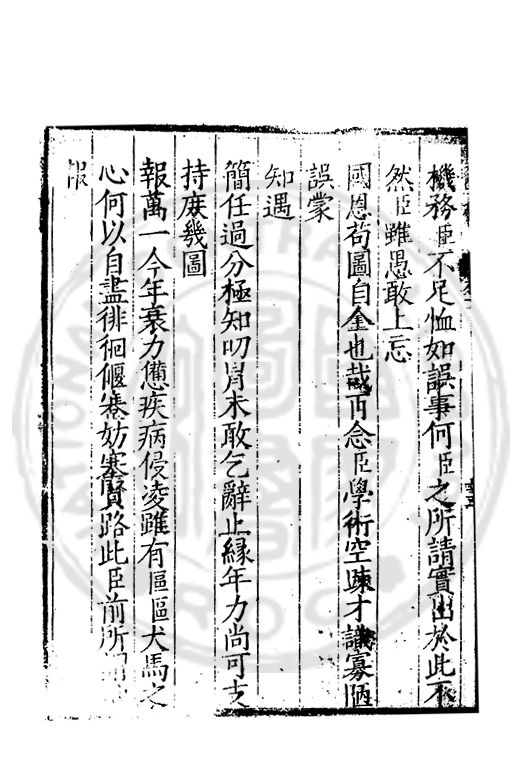 機務臣不足恤如誤事何臣之所請實出於此不
然臣雖愚敢上忘
國恩苟圖自全也哉再念臣學術空踈才識寡陋
誤蒙
知遇
簡任過分極知叨冐未敢乞辭止緣年力尚可支
持庻幾圖
報萬一今年衰力憊疾病侵凌雖有區區犬馬之
心何以自盡徘徊偃蹇妨塞賢路此臣前所
報